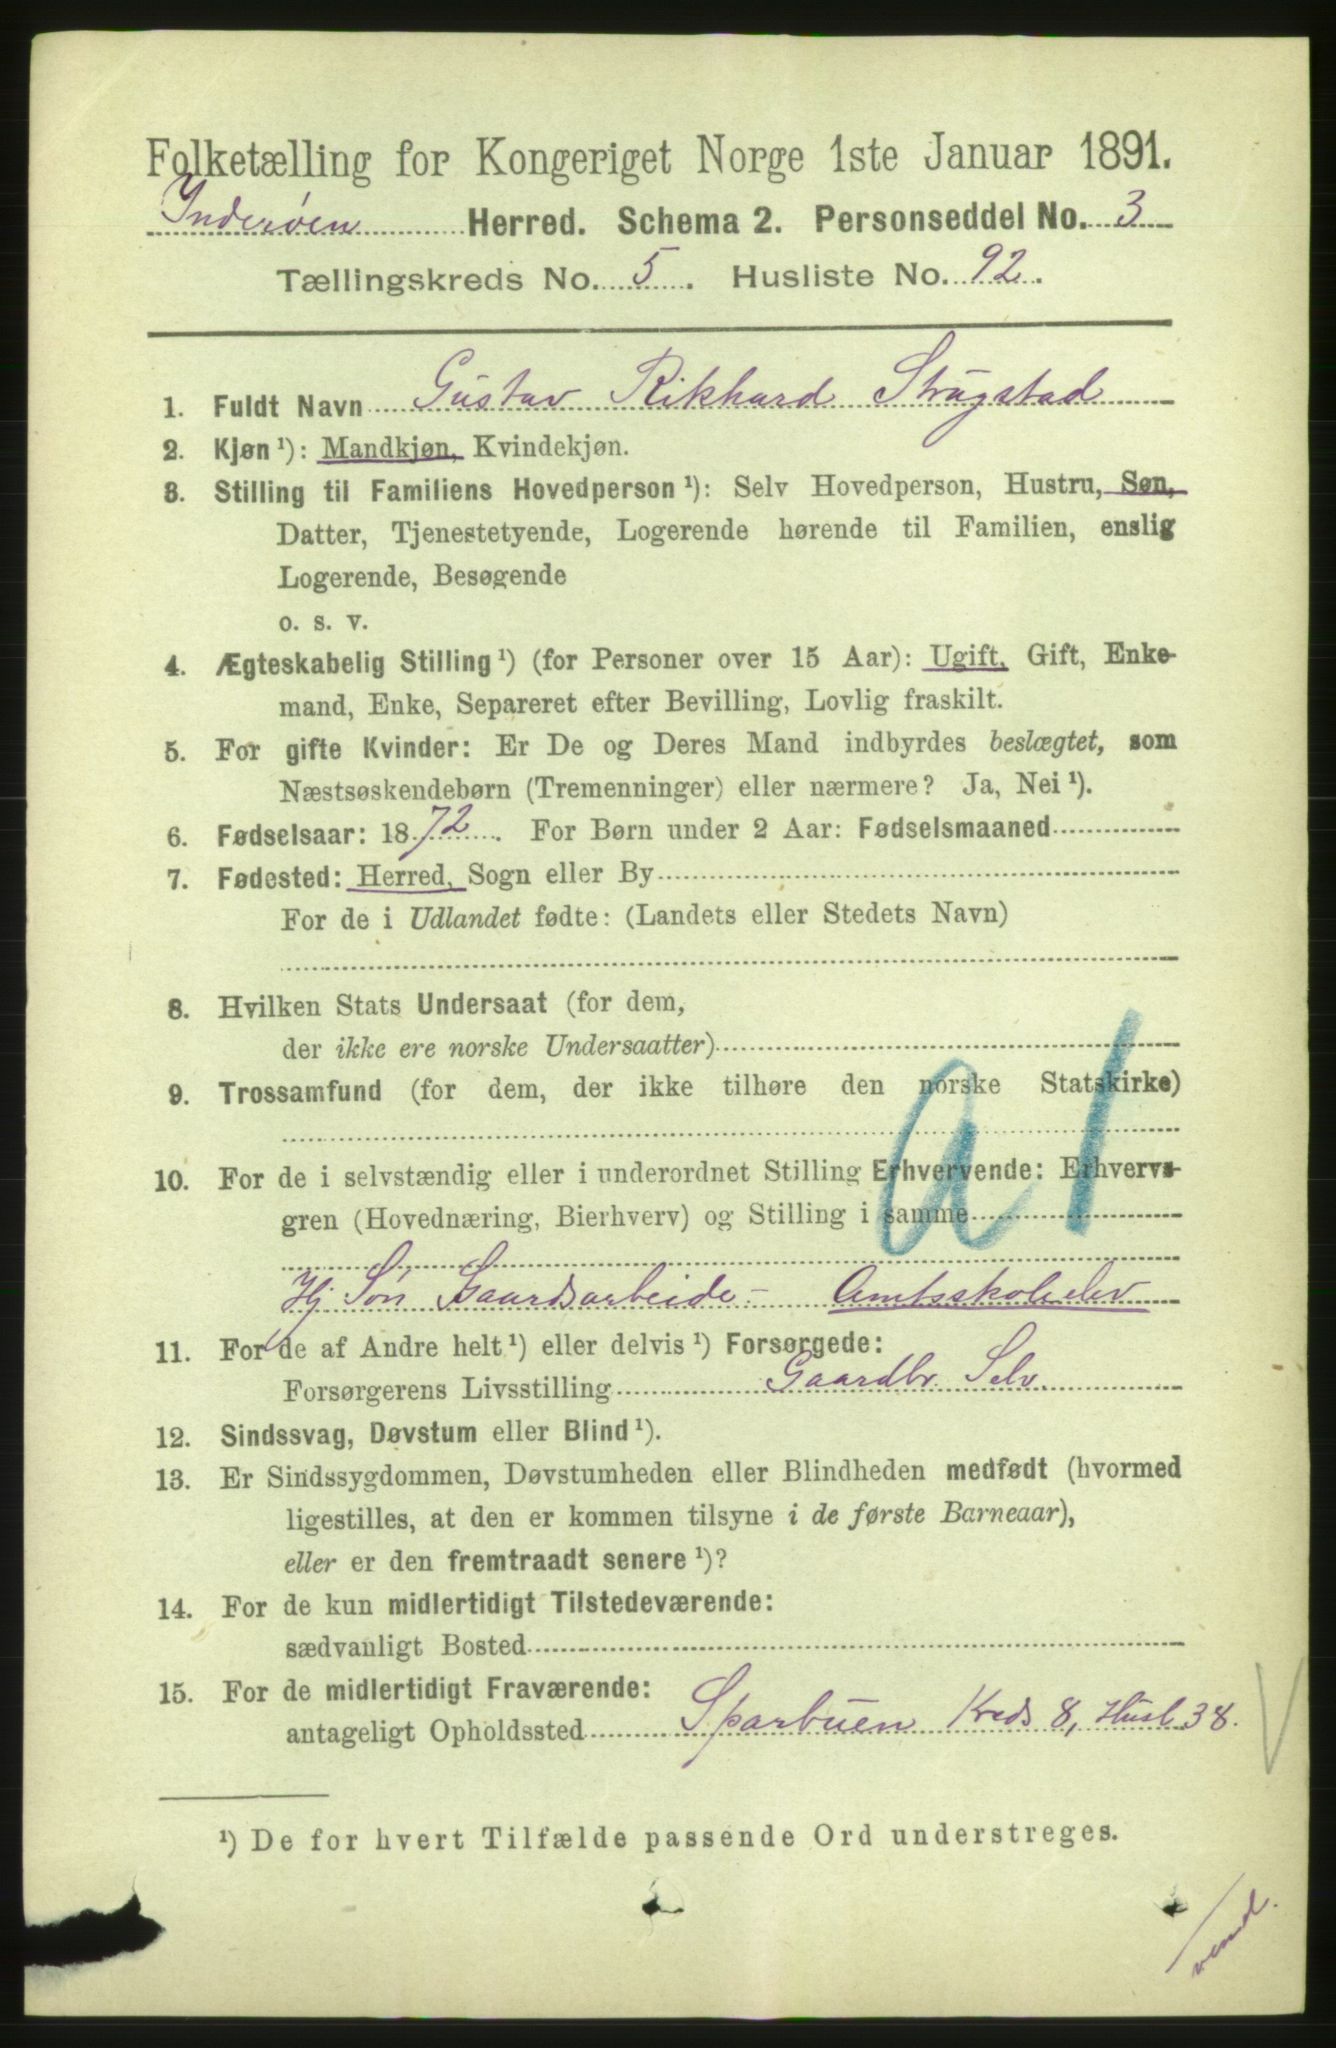 Folketælling for Kongeriget Norge 1ste Januar 1891.
Inderøen Herred. Schema 2. Personseddel No. 3
Tællingskreds No. 5. Husliste No. 92.
1. Fuldt Navn Gustav Rikhard Strugstad
2. Kjøn ¹): Mandkjøn, Kvindekjøn.
3. Stilling til Familiens Hovedperson ¹): Selv Hovedperson, Hustru, Søn,
Datter, Tjenestetyende, Logerende hørende til Familien, enslig
Logerende, Besøgende
o. s. v.
4. Ægteskabelig Stilling ¹) (for Personer over 15 Aar): Ugift, Gift, Enke-
mand, Enke, Separeret efter Bevilling, Lovlig fraskilt.
5. For gifte Kvinder: Er De og Deres Mand indbyrdes beslægtet, som
Næstsøskendebørn (Tremenninger) eller nærmere? Ja, Nei ¹).
6. Fødselsaar: 1872. For Børn under 2 Aar: Fødselsmaaned
7. Fødested: Herred, Sogn eller By
For de i Udlandet fødte: (Landets eller Stedets Navn)
8. Hvilken Stats Undersaat (for dem,
der ikke ere norske Undersaatter)
9. Trossamfund (for dem, der ikke tilhøre den norske Statskirke)
a1
10. For de i selvstændig eller i underordnet Stilling Erhvervende: Erhvervs-
gren (Hovednæring, Bierhverv) og Stilling i samme
Hj Søn Gaardsarbeide - Amtsskoleelev
11. For de af Andre helt ¹) eller delvis ¹) Forsørgede:
Forsørgerens Livsstilling Gaardbr. Selv.
12. Sindssvag, Døvstum eller Blind ¹).
13. Er Sindssygdommen, Døvstumheden eller Blindheden medfødt (hvormed
ligestilles, at den er kommen tilsyne i de første Barneaar),
eller er den fremtraadt senere ¹)?
14. For de kun midlertidigt Tilstedeværende:
sædvanligt Bosted
15. For de midlertidigt Fraværende:
antageligt Opholdssted Sparbuen Kreds 8, Husl 38.
¹) De for hvert Tilfælde passende Ord understreges.
vend.